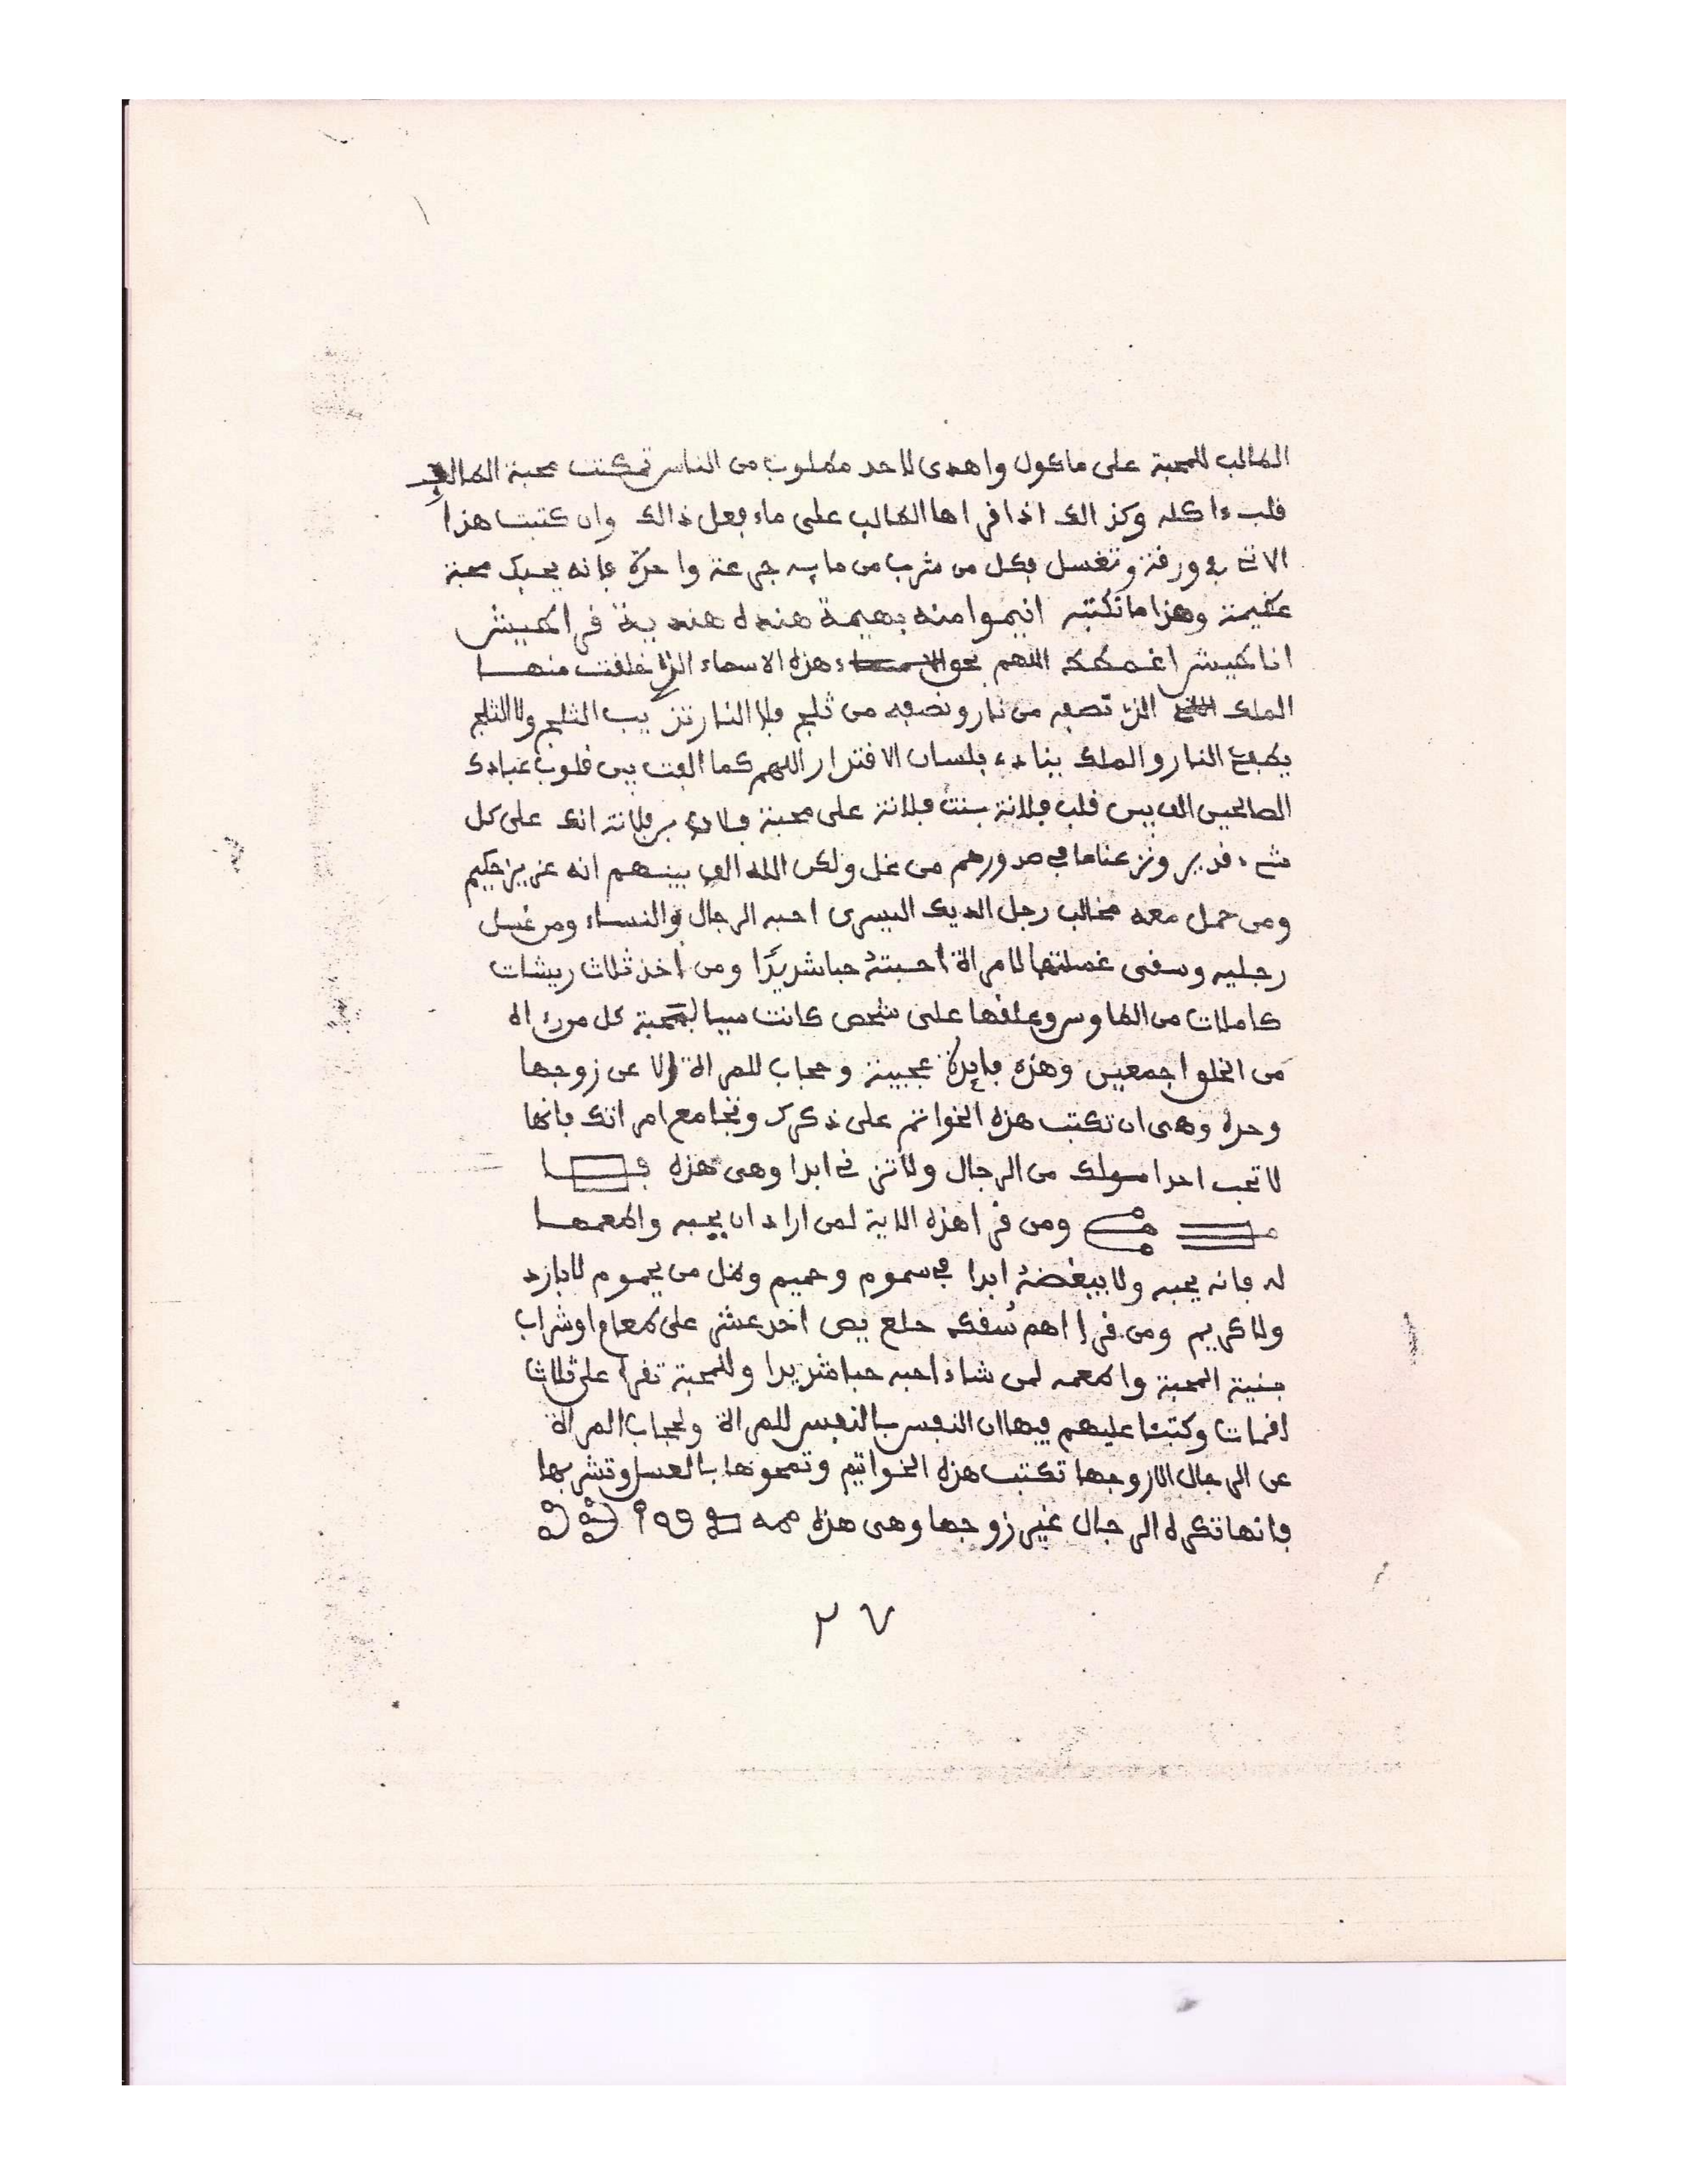 الطالب للمحبة على ماكول واهدى لاحد مطلوب من الناس تمكنت محبة الطالب في
قلب ءاكله وكذالك اذا قراها الطالب على ماء يفعل ذالك وان كتبت هذا
الاتي في ورقة وتغسل فكل من شرب من مايه جرعة واحدة فانه يحبك محبة
عظيمة وهذا ما تكتب انيموا منه بهيمة هنده هندية
انا اللهم بحق هذه الاسماء الذي خلقت منها
الملك الذي نصفه من نار ونصفه من ثلج فلا النار تذيب الثلج ولا الثلج
يطفئ النار والملك ينادي بلسان الاقتدار اللهم كما الفت بين قلوب عبادك
الصالحين الف بين قلب فلانة بنت فلانة على محبة فلان بن فلانة انك على كل
شيء قدير ونزعنا ما في صدورهم من غل ولكن الله الف بينهم انه عزيز حكيم
ومن حمل معه مخالب رجل الديك اليسرى احبه الرجال والنساء ومن غسل
رجليه وسقى غسلتها لامراة احبته حبا شديدا ومن اخذ ثلاث ريشات
كاملات من الطاوس وعلقها على شخص كانت سببا لمحبة كل من رءاه
من الخلق اجمعين وهذه فايدة عجيبة وحجاب للمراة الا عن زوجها
وحده وهى ان تكتب هذه الخواتم على ذكرك وتجامع امراتك فانها
لا تحب احدا سواك من الرجال ولا تزني ابدا وهى هذه
ومن قرا هذه الاية لمن اراد ان يحبه واطعمها
له فانه يحبه ولا يبغضه ابدا في سموم وحميم وظل من يحموم لا بارد
ولا كريم ومن قرا اهم سقك حلع يص احد عشر على طعام او شراب
بنية المحبة واطعمه لمن شاء احبه حبا شديدا وللمحبة تقرا على ثلاث
لقمات وكتبنا عليهم فيها ان النفس بالنفس للمراة ولحجاب المراة
عن الرجال الا زوجها تكتب هذه الخواتيم وتمحوها بالعسل وتشربها
فانها تكره الرجال غير زوجها وهى هذه
٢٧